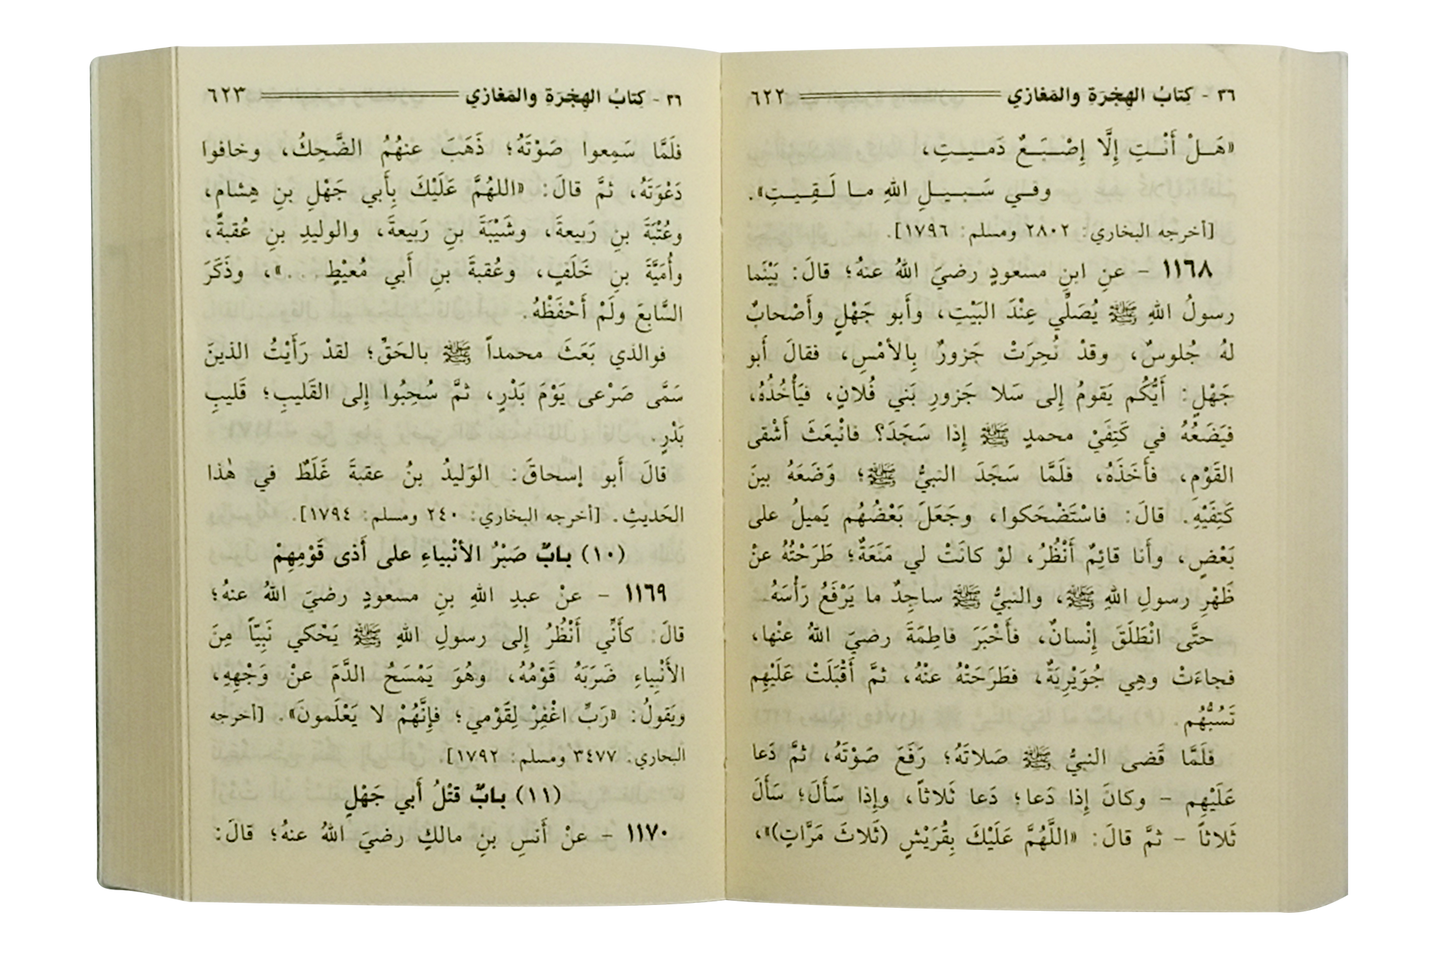 ٣٦ - كِتابُ الهِجْرَةِ والمَغازي ٦٢٢
«هَـلْ أَنْـتِ إِلَّا إِصْـبَـعٌ دَمـيـتِ،
وفـي سَـبـيـلِ اللهِ مـا لَـقِـيـتِ».
[أخرجه البخاري: ٢٨٠٢ ومسلم: ١٧٩٦].
١١٦٨ - عنِ ابنِ مسعودٍ رضيَ اللهُ عنهُ؛ قالَ: بَيْنَما
رسولُ اللهِ ﷺ يُصَلِّي عِنْدَ البَيْتِ، وأَبو جَهْلٍ وأَصْحابٌ
لهُ جُلوسٌ، وقدْ نُحِرَتْ جَزورٌ بِالأمْسِ، فقالَ أَبو
جَهْلٍ: أَيُّكُم يَقومُ إِلى سَلا جَزورِ بَني فُلانٍ، فيَأْخُذُهُ،
فيَضَعُهُ في كَتِفَيْ محمدٍ ﷺ إِذا سَجَدَ؟ فانْبَعَثَ أَشْقى
القَوْمِ، فأَخَذَهُ، فلَمَّا سَجَدَ النبيُّ ﷺ؛ وَضَعَهُ بينَ
كَتِفَيْهِ. قالَ: فاسْتَضْحَكوا، وجَعَلَ بَعْضُهُم يَميلُ على
بَعْضٍ، وأَنا قائِمٌ أَنْظُرُ، لوْ كانَتْ لي مَنَعَةٌ؛ طَرَحْتُهُ عنْ
ظَهْرِ رسولِ اللهِ ﷺ، والنبيُّ ﷺ ساجِدٌ ما يَرْفَعُ رَأْسَهُ.
حتَّى انْطَلَقَ إِنْسانٌ، فأَخْبَرَ فاطِمَةَ رضيَ اللهُ عنْها،
فجاءَتْ وهِي جُوَيْرِيَةٌ، فطَرَحَتْهُ عنْهُ، ثمَّ أَقْبَلَتْ عَلَيْهِم
تَسُبُّهُم.
فلَمَّا قَضى النبيُّ ﷺ صَلاتَهُ؛ رَفَعَ صَوْتَهُ، ثمَّ دَعا
عَلَيْهِم - وكانَ إِذا دَعا؛ دَعا ثَلاثاً، وإِذا سَأَلَ؛ سَأَلَ
ثَلاثاً - ثمَّ قالَ: «اللَّهُمَّ عَلَيْكَ بِقُرَيْشٍ (ثَلاثَ مَرَّاتٍ)»،
٣٦ - كِتابُ الهِجْرَةِ والمَغازي ٦٢٣
فلَمَّا سَمِعوا صَوْتَهُ؛ ذَهَبَ عنهُمُ الضَّحِكُ، وخافوا
دَعْوَتَهُ، ثمَّ قالَ: «اللهُمَّ عَلَيْكَ بِأَبي جَهْلِ بنِ هِشامٍ،
وعُتْبَةَ بنِ رَبيعةَ، وشَيْبَةَ بنِ رَبيعةَ، والوليدِ بنِ عُقبةَ،
وأُمَيَّةَ بنِ خَلَفٍ، وعُقبةَ بنِ أَبي مُعيْطٍ...»، وذَكَرَ
السَّابِعَ ولَمْ أَحْفَظْهُ.
فوالذي بَعَثَ محمداً ﷺ بالحَقِّ؛ لقدْ رَأَيْتُ الذينَ
سَمَّى صَرْعى يَوْمَ بَدْرٍ، ثمَّ سُحِبُوا إِلى القَليبِ؛ قَليبِ
بَدْرٍ.
قالَ أَبو إسحاقَ: الوَليدُ بنُ عقبةَ غَلَطٌ في هٰذا
الحَديثِ. [أخرجه البخاري: ٢٤٠ ومسلم: ١٧٩٤].
(١٠) بابٌ صَبْرُ الأنْبياءِ على أَذى قَوْمِهِمْ
١١٦٩ - عنْ عبدِ اللهِ بنِ مسعودٍ رضيَ اللهُ عنهُ؛
قالَ: كأَنِّي أَنْظُرُ إِلى رسولِ اللهِ ﷺ يَحْكي نَبِيّاً مِنَ
الأَنْبِياءِ ضَرَبَهُ قَوْمُهُ، وهُوَ يَمْسَحُ الدَّمَ عنْ وَجْهِهِ،
ويَقولُ: «رَبِّ اغْفِرْ لِقَوْمي؛ فإِنَّهُمْ لا يَعْلَمونَ». [أخرجه
البخاري: ٣٤٧٧ ومسلم: ١٧٩٢]
(١١) بابٌ قتْلُ أَبي جَهْلٍ
١١٧٠ - عنْ أَنسِ بنِ مالكٍ رضيَ اللهُ عنهُ؛ قالَ: